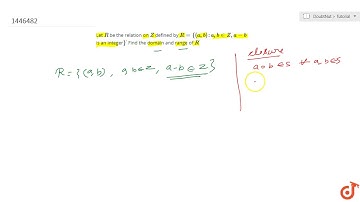 1446482
DoubtNut > Tutorial
Let R be the relation on Z defined by R = {(a, b) : a, b ∈ Z, a − b
is an integer} Find the domain and range of R
R = {(a,b), a,b ∈ Z, a-b ∈ Z}
closure
a o b ∈ S ∀ a,b ∈ S
doubtnut